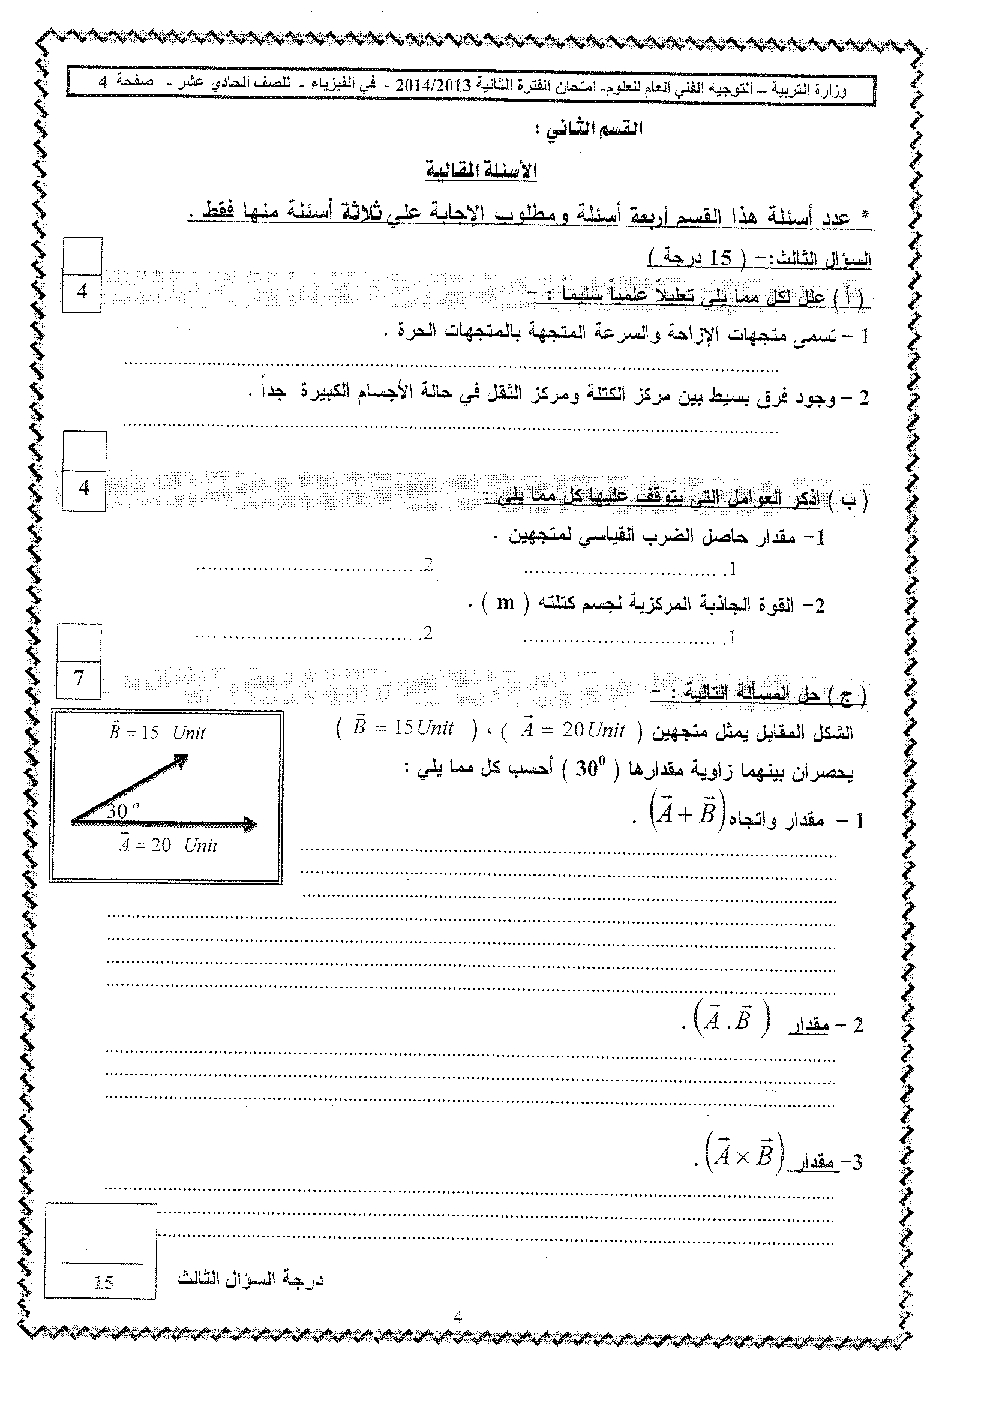 وزارة التربية – التوجيه الفني العام للعلوم- امتحان الفترة الثانية 2014/2013 - في الفيزياء - للصف الحادي عشر - صفحة 4
القسم الثاني :
الأسئلة المقالية
* عدد أسئلة هذا القسم أربعة أسئلة ومطلوب الإجابة على ثلاثة أسئلة منها فقط .
السؤال الثالث:- ( 15 درجة )
4
( أ ) علل لكل مما يلي تعليلاً علمياً سليماً : -
1 – تسمى متجهات الإزاحة والسرعة المتجهة بالمتجهات الحرة .
2 – وجود فرق بسيط بين مركز الكتلة ومركز الثقل في حالة الأجسام الكبيرة جداً .
4
( ب ) اذكر العوامل التي يتوقف عليها كل مما يلي :
1- مقدار حاصل الضرب القياسي لمتجهين .
1. ........................... 2. ...........................
2- القوة الجاذبة المركزية لجسم كتلته ( m ) .
1. ........................... 2. ...........................
7
( ج ) حل المسألة التالية : -
الشكل المقابل يمثل متجهين ( A = 20 Unit ) ، ( B = 15 Unit )
يحصران بينهما زاوية مقدارها ( 30⁰ ) أحسب كل مما يلي :
B = 15 Unit
30 º
A = 20 Unit
1 - مقدار واتجاه (A + B) .
2 - مقدار (A . B) .
3- مقدار (A × B) .
درجة السؤال الثالث
15
4